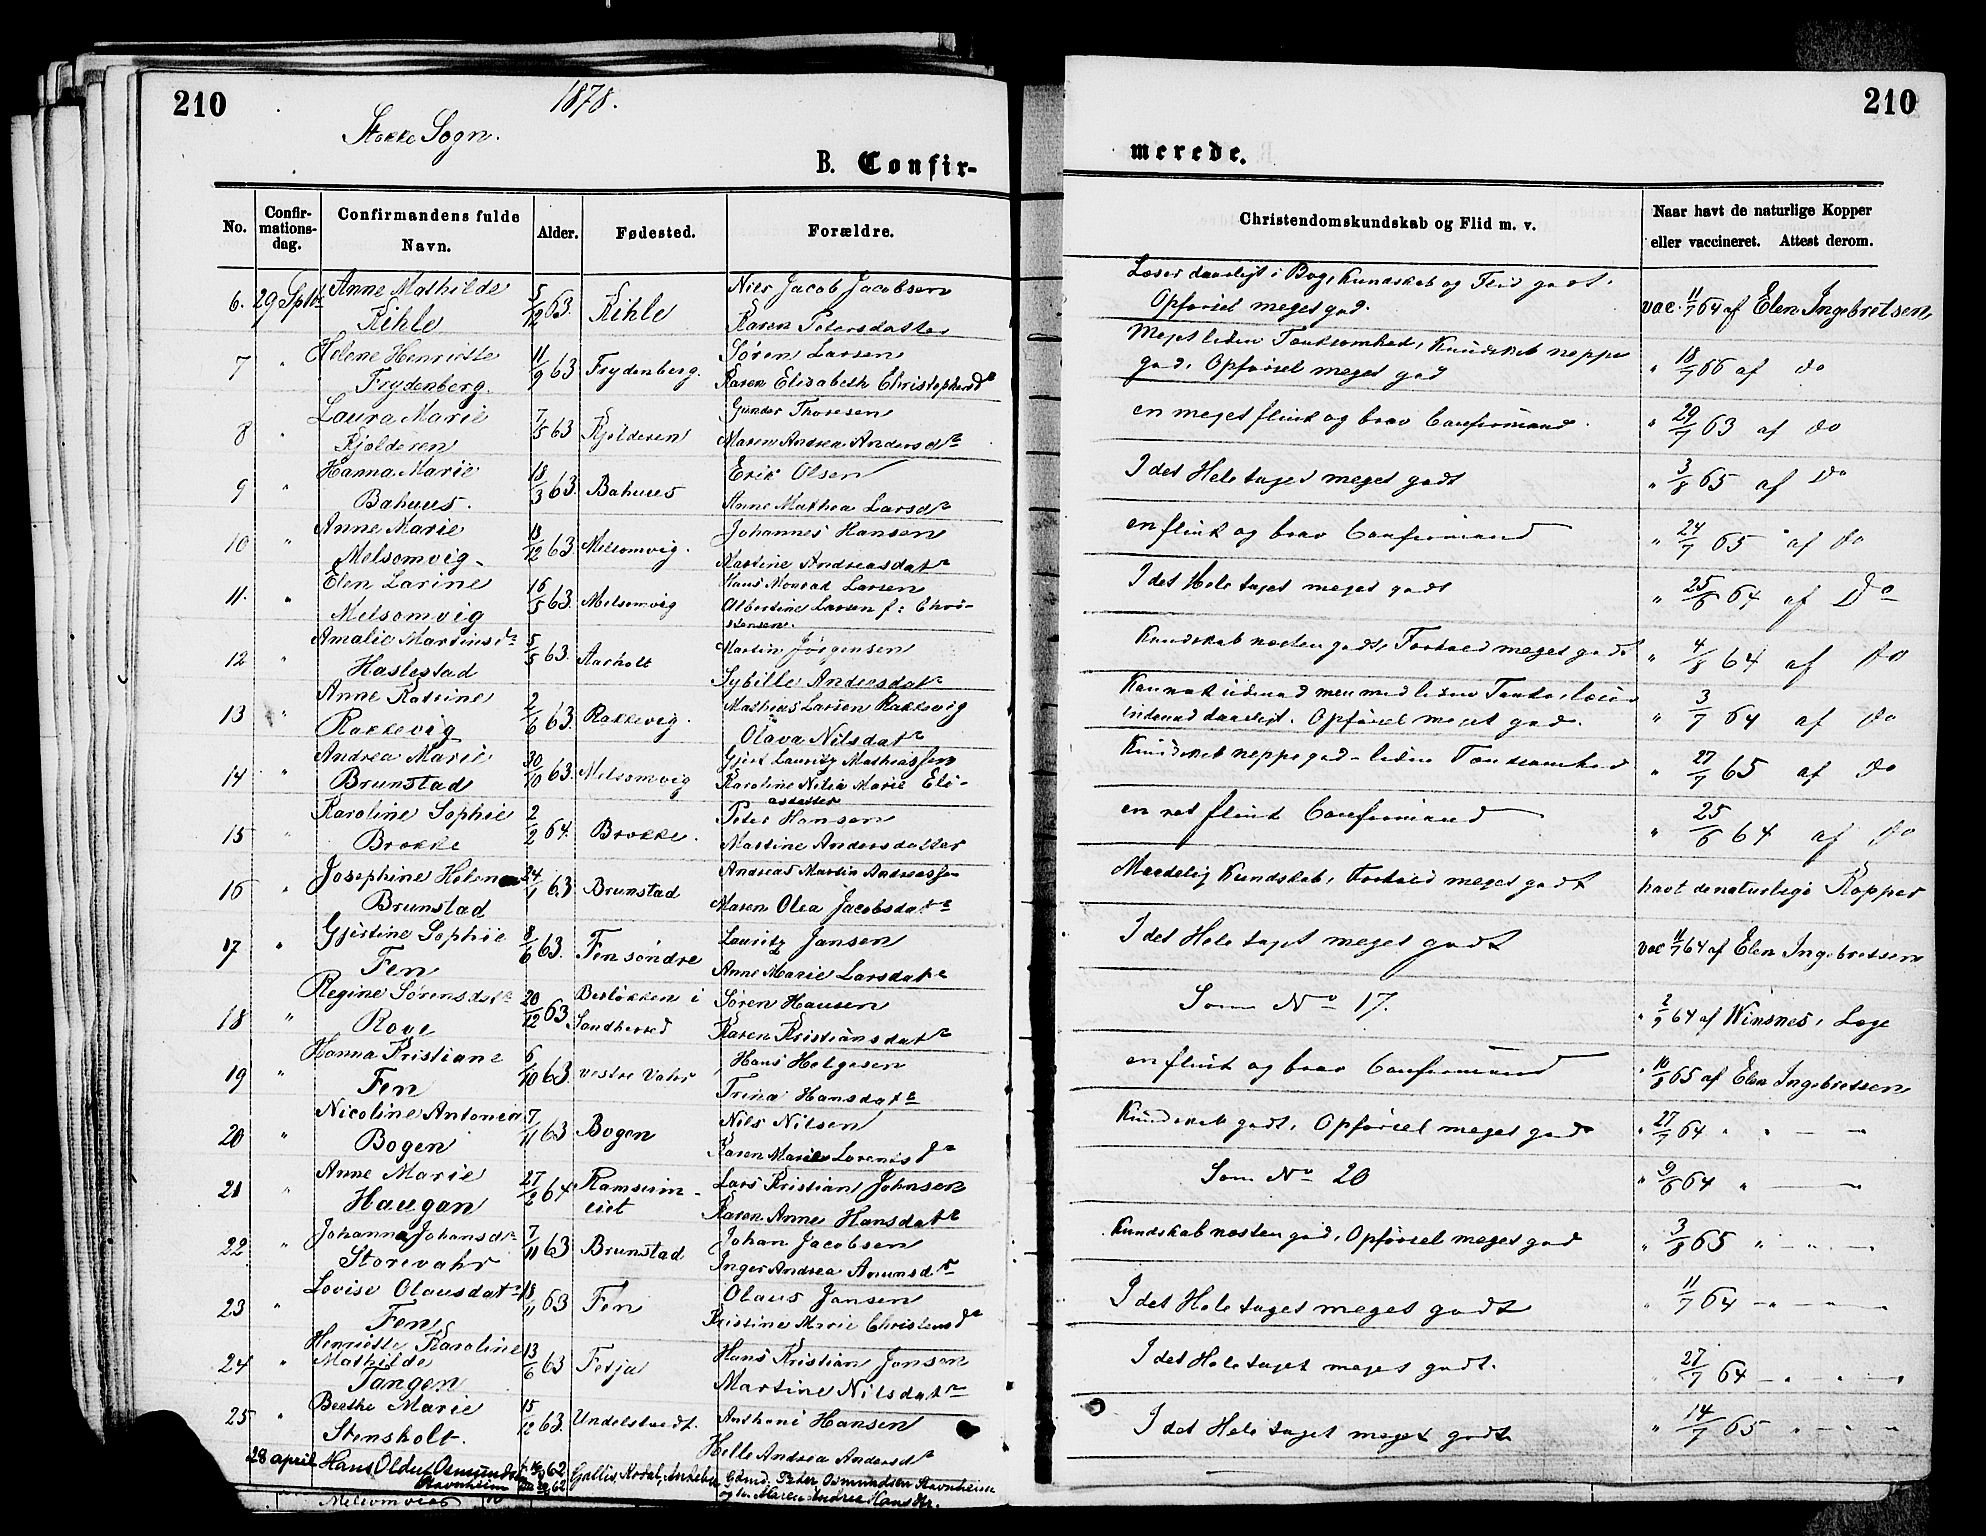 210
1878.
210
Stokke Sogn.
B. Confir-
merede.
No.
Confir-mations-dag.
Confirmandens fulde Navn.
Alder.
Fødested.
Forældre.
Christendomskundskab og Flid m. v.
Naar havt de naturlige Kopper eller vaccineret. Attest derom.
6. 29 Septbr Anne Mathilde 5/12 63. Kihle Niels Jacob Jacobsen Læser daarligt i Bog, Kundskab og Flid godt, vac. 11/7 64 af Elen Ingebretsen
Kihle Karen Petersdatter Opførsel meget god.
7 " Helene Henriette 11/9 63 Frydenberg. Søren Larsen Meget liden Tænksomhed, Kundskab neppe " 18/7 66 af do
Frydenberg. Karen Elisabeth Christophersdr god, Opførsel meget god
8 " Laura Marie 7/5 63 Kjolderen Gunder Thoresen en meget flink og brav Confirmand. " 29/7 63 af do
Kjolderen Maren Andrea Andersdr
9 " Hanna Marie 18/3 63. Bahuus Erik Olsen I det Hele taget meget godt " 3/8 65 af Do
Bahuus. Anne Mathea Larsdr
10 " Anne Marie 13/12 63 Melsomvig. Johannes Hansen en flink og brav Confirmand " 24/7 65 af do
Melsomvig. Martine Andreasdatr
11. " Elen Larine 16/5 63. Melsomvig Hans Monrad Larsen I det Hele taget meget godt " 25/6 64 af Do
Melsomvig Albertine Larsen f: Chri-
stensen.
12 " Amalie Martinsdr 5/5 63. Aarholt Martin Jørgensen Kundskab næsten godt, Forhold meget godt " 4/8 64 af do
Haslestad Sybille Andreasdatr
13 " Anne Katrine 2/6 63. Rakkevig. Mathias Larsen Rakkevig Kan nok udenad men med liden Tanke, læser " 3/7 64 af do
Rakkevig Olava Nilsdatr indenad daarligt. Opførsel meget god.
14 " Andrea Marie 30/10 63. Melsomvig Gjert Lauritz Mathiassen Kundskab neppe god - liden Tænksomhed " 27/7 65 af do
Brunstad Karoline Nilia Marie Eli-
asdatter
15 " Karoline Sophie 2/2 64. Brokke. Peter Hansen en ret flink Confirmand " 25/6 64 af do
Brokke Martine Andersdatter
16 " Josephine Helene 24/1 63 Brunstad Andreas Martin Andreassen Maadelig Kundskab, Forhold meget godt havt de naturlige Kopper
Brunstad Maren Olea Jacobsdatr
17 " Gjertine Sophie 8/6 63. Fen søndre Lauritz Jansen I det Hele taget meget godt vac 11/7 64 af Elen Ingebretsen
Fen Anne Marie Larsdatr
18 " Regine Sørensdatr 20/12 63 Besløkken i Søren Hansen Som No 17. " 2/9 64 af Winsnes, Læge
Rove Sandherred Karen Kristiansdatr
19 " Hanna Kristiane 6/10 63. vestre Vahr Hans Helgesen en flink og brav Confirmand " 10/8 65 af Elen Ingebretsen
Fen Trina Hansdatr
20 " Nicoline Antonia 7/11 63 Bogen Nils Nilsen Kundskab godt, Opførsel meget god " 27/7 64 " " — "
Bogen Karen Marie Lorentsdr
21 " Anne Marie 27/2 64 Ramsum- Lars Kristian Johnsen Som No 20 " 9/6 64 " — "
Haugan eiet Karen Anne Hansdatr
22 " Johanna Johansdr 7/11 63 Brunstad Johan Jacobsen Kundskab næsten god, Opførsel meget god " 3/8 65 " — " —
Storevahr Inger Andrea Amundsdr
23 " Lovise Olausdatr 18/11 63 Fen Olaus Jansen I det Hele taget meget godt " 11/7 64 — " — " —
Fen Kristine Marie Christensdr
24 " Henriette Karoline 13/6 63 Feṡja Hans Kristian Jansen I det Hele taget meget godt. " 27/7 64 — " " "
Mathilde
Tangen Martine Nilsdatr
25 " Berthe Marie 15/12 63. Undelstvedt. Anthoni Hansen I det Hele taget meget godt " 14/7 65 " — " "
Stensholt. Helle Andrea Andersdr
28 april Hans Oldus Osmundsen 62 Gallis, Kodal, Andebu Gbmd. Peder Osmundsen Stavnheim
Stavnheim 62 og h. Maren Andrea Hansdtr.
Melsomvig